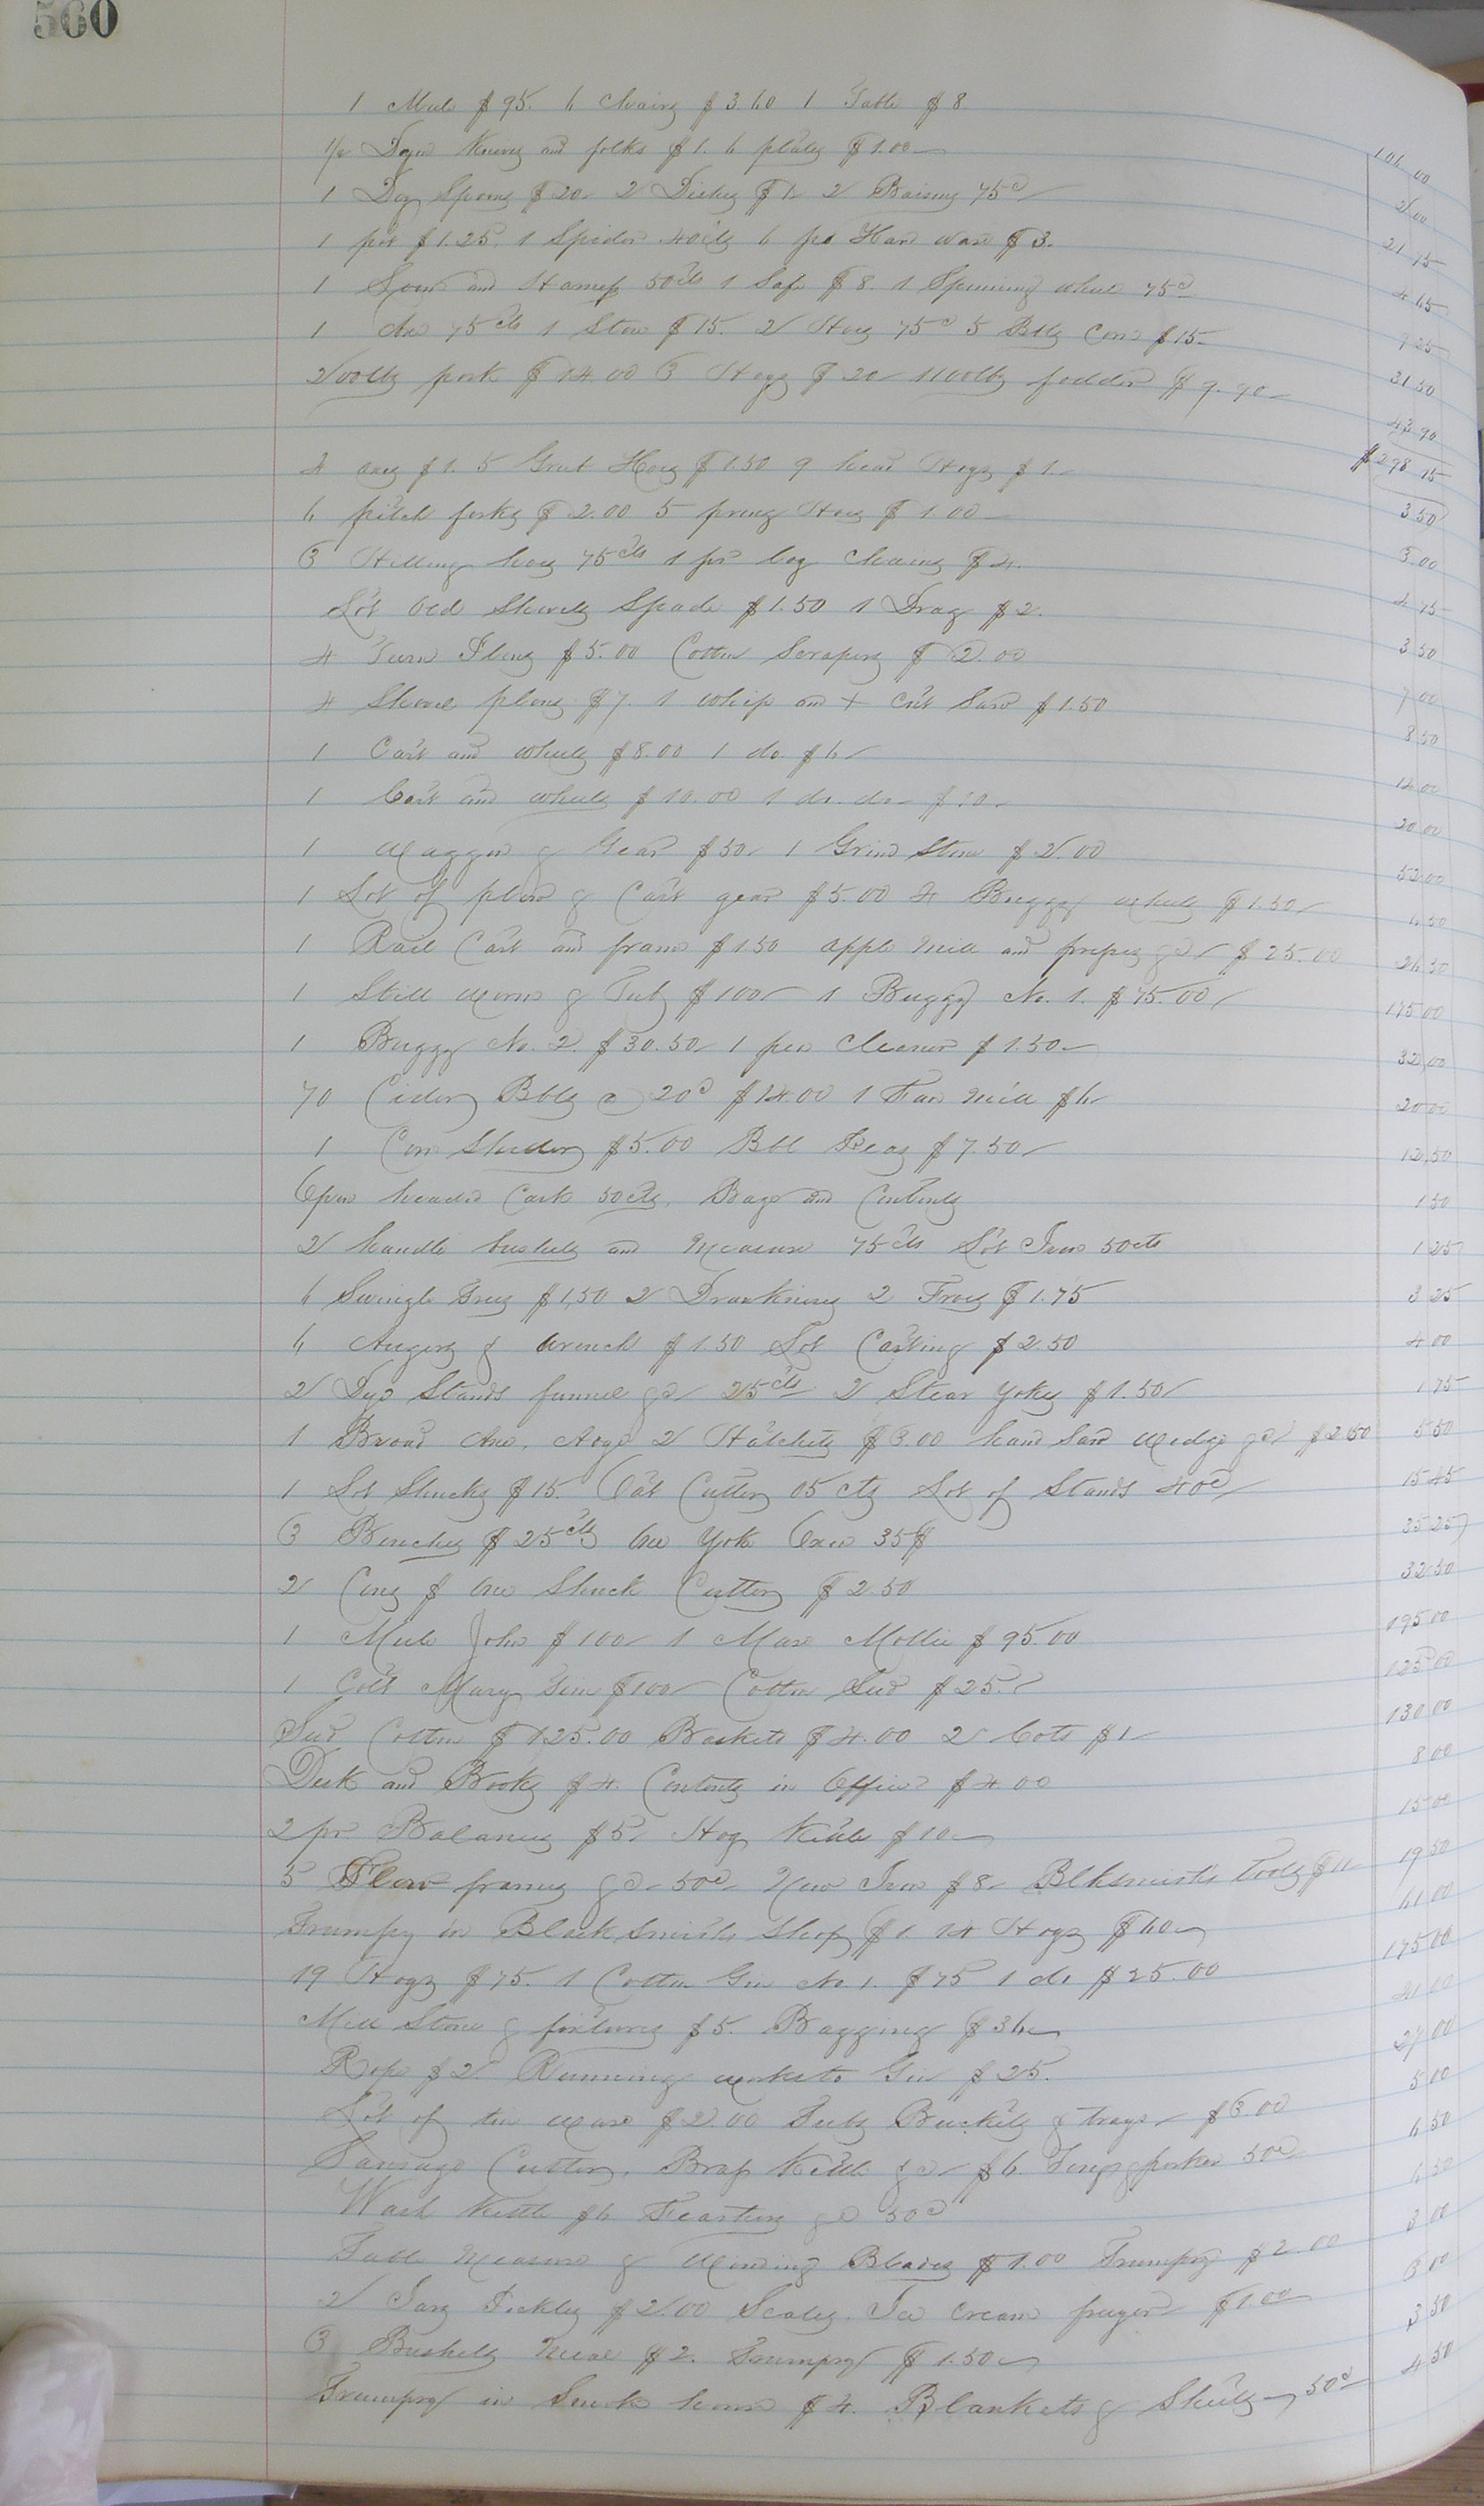 560
1 Mule $95. 6 Chairs $3.60 1 Table $8 106 00
1/2 Dozn Knives and folks $1. 6 plates $1.00 2 00
1 Doz Spoons $20 2 Dishes $1 2 Baisins 75c 21 75
1 pot $1.25. 1 Spider 40cts 6 ps Hard ware $3. 4 65
1 Loom and Harness 50cts 1 Safe $8. 1 Spinning wheel 75c 9 25
1 Axe 75cts 1 Stove $15. 2 Hoes 75c 5 Blls Corn $15 31 50
200lbs pork $14.00 3 Hogs $20 1100lbs fodder $9.90 43 90
$298 15
4 axes $1. 5 Grub Hoes $1.50 9 head Hogs $1 3 50
6 pitch forks $2.00 5 prong Hoes $1.00 3 00
3 Hilling hoes 75cts 1 pr log Chains $4. 4 75
Lot Old Shovels Spade $1.50 1 Drag $2. 3 50
4 Turn Plows $5.00 Cotton Scrapers $2.00 7 00
4 Shovel plows $7. 1 Whip and + Cut Saw $1.50 8 50
1 Cart and wheels $8.00 1 do. $6 14 00
1 Cart and wheels $10.00 1 do. do $10 20 00
1 Waggon & Gear $50 1 Grind Stone $2.00 52 00
1 Lot of plow & Cart gear $5.00 4 Buggy wheels $1.50 6 50
1 Rail Cart and frame $1.50 apple Mill and press &c $25.00 26 50
1 Still Worm & Tub $100 1 Buggy No. 1. $75.00 175 00
1 Buggy No. 2. $30.50 1 pea Cleaner $1.50 32 00
70 Cider Bbls @ 20c $14.00 1 Fan Mill $6 20 00
1 Corn Sheller $5.00 Bbl Peas $7.50 12 50
Open headed Cask 50cts, Bags and Contents 1 50
2 handle baskets and Measure 75cts Lot Iron 50cts 1 25
6 Swingle Trees $1,50 2 Drawknives 2 Frows $1.75 3 25
6 Augers & wrench $1.50 Lot Casting $2.50 4 00
2 Dye Stands funnel &c 25cts 2 Stear Yokes $1.50 1 75
1 Broad Axe, Adge 2 Hatchets $3.00 hand Saw wedge &c $2.50 5 50
1 Lot Shucks $15. Oat Cutter 05cts Lot of Stands 40c 15 45
3 Benches $25cts One Yoke Oxen 35$ 35 25
2 Cows $ One Shuck Cutter $2.50 32 50
1 Mule John $100 1 Mare Mollie $95.00 195 00
1 Colt Mary Jim $100 Cotton Seed $25. 125 00
Seed Cotton $125.00 Baskets $4.00 2 Cots $1 130 00
Desk and Books $4. Contents in Office $4.00 8 00
2 pr Balances $5 Hog Kettle $10 15 00
5 Plow frames &c 50c New Iron $8 Blksmiths tools $11 19 50
Trumpy in Black Smiths Shop $1. 14 Hogs $60 61 00
19 Hogs $75. 1 Cotton Gin No. 1. $75 1 do $25.00 175 00
Mill Stone & fixtures $5. Bagging $36 41 00
Rope $2. Running works to Gin $25. 27 00
Lot of tin ware $2.00 Tubs Buckets & trays $3.00 5 00
Sausage Cutter, Brass Kettle &c $6. Tongs & poker 50c 6 50
Wash Kettle $6 &c 50c 6 50
Table Measure & Blades $1.00 Trumpry $2.00 3 00
2 Jars Pickles $2.00 Scales. Ice Cream frezer $1.00 3 00
3 Bushels Meal $2. Trumpry $1.50 3 50
Trumpry in Smoke house $4. Blankets & 50c 4 50